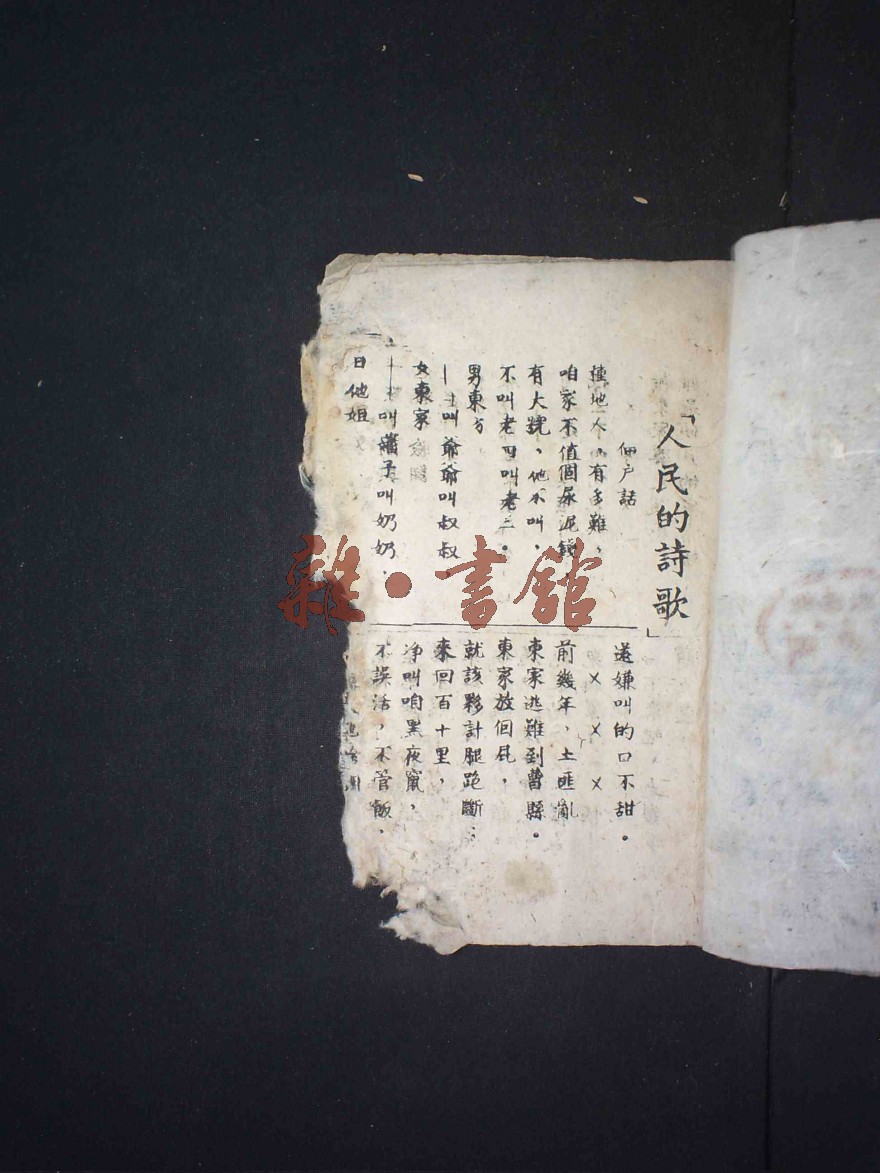 「人民的詩歌」
佃户話
種地人 有多難，
咱家不值個尿泥錢
有大號，他不叫，
不叫老四叫老三。
男東方
叫爺爺叫叔叔
女東家
叫嬸子叫奶奶，
日他姐
還嫌叫的口不甜。
× × ×
前幾年，土匪亂
東家逃難到曹縣。
東家放個屁，
就該夥計腿跑斷；
來回百十里，
净叫咱黑夜竄，
不誤活，不管飯，
雜·書館